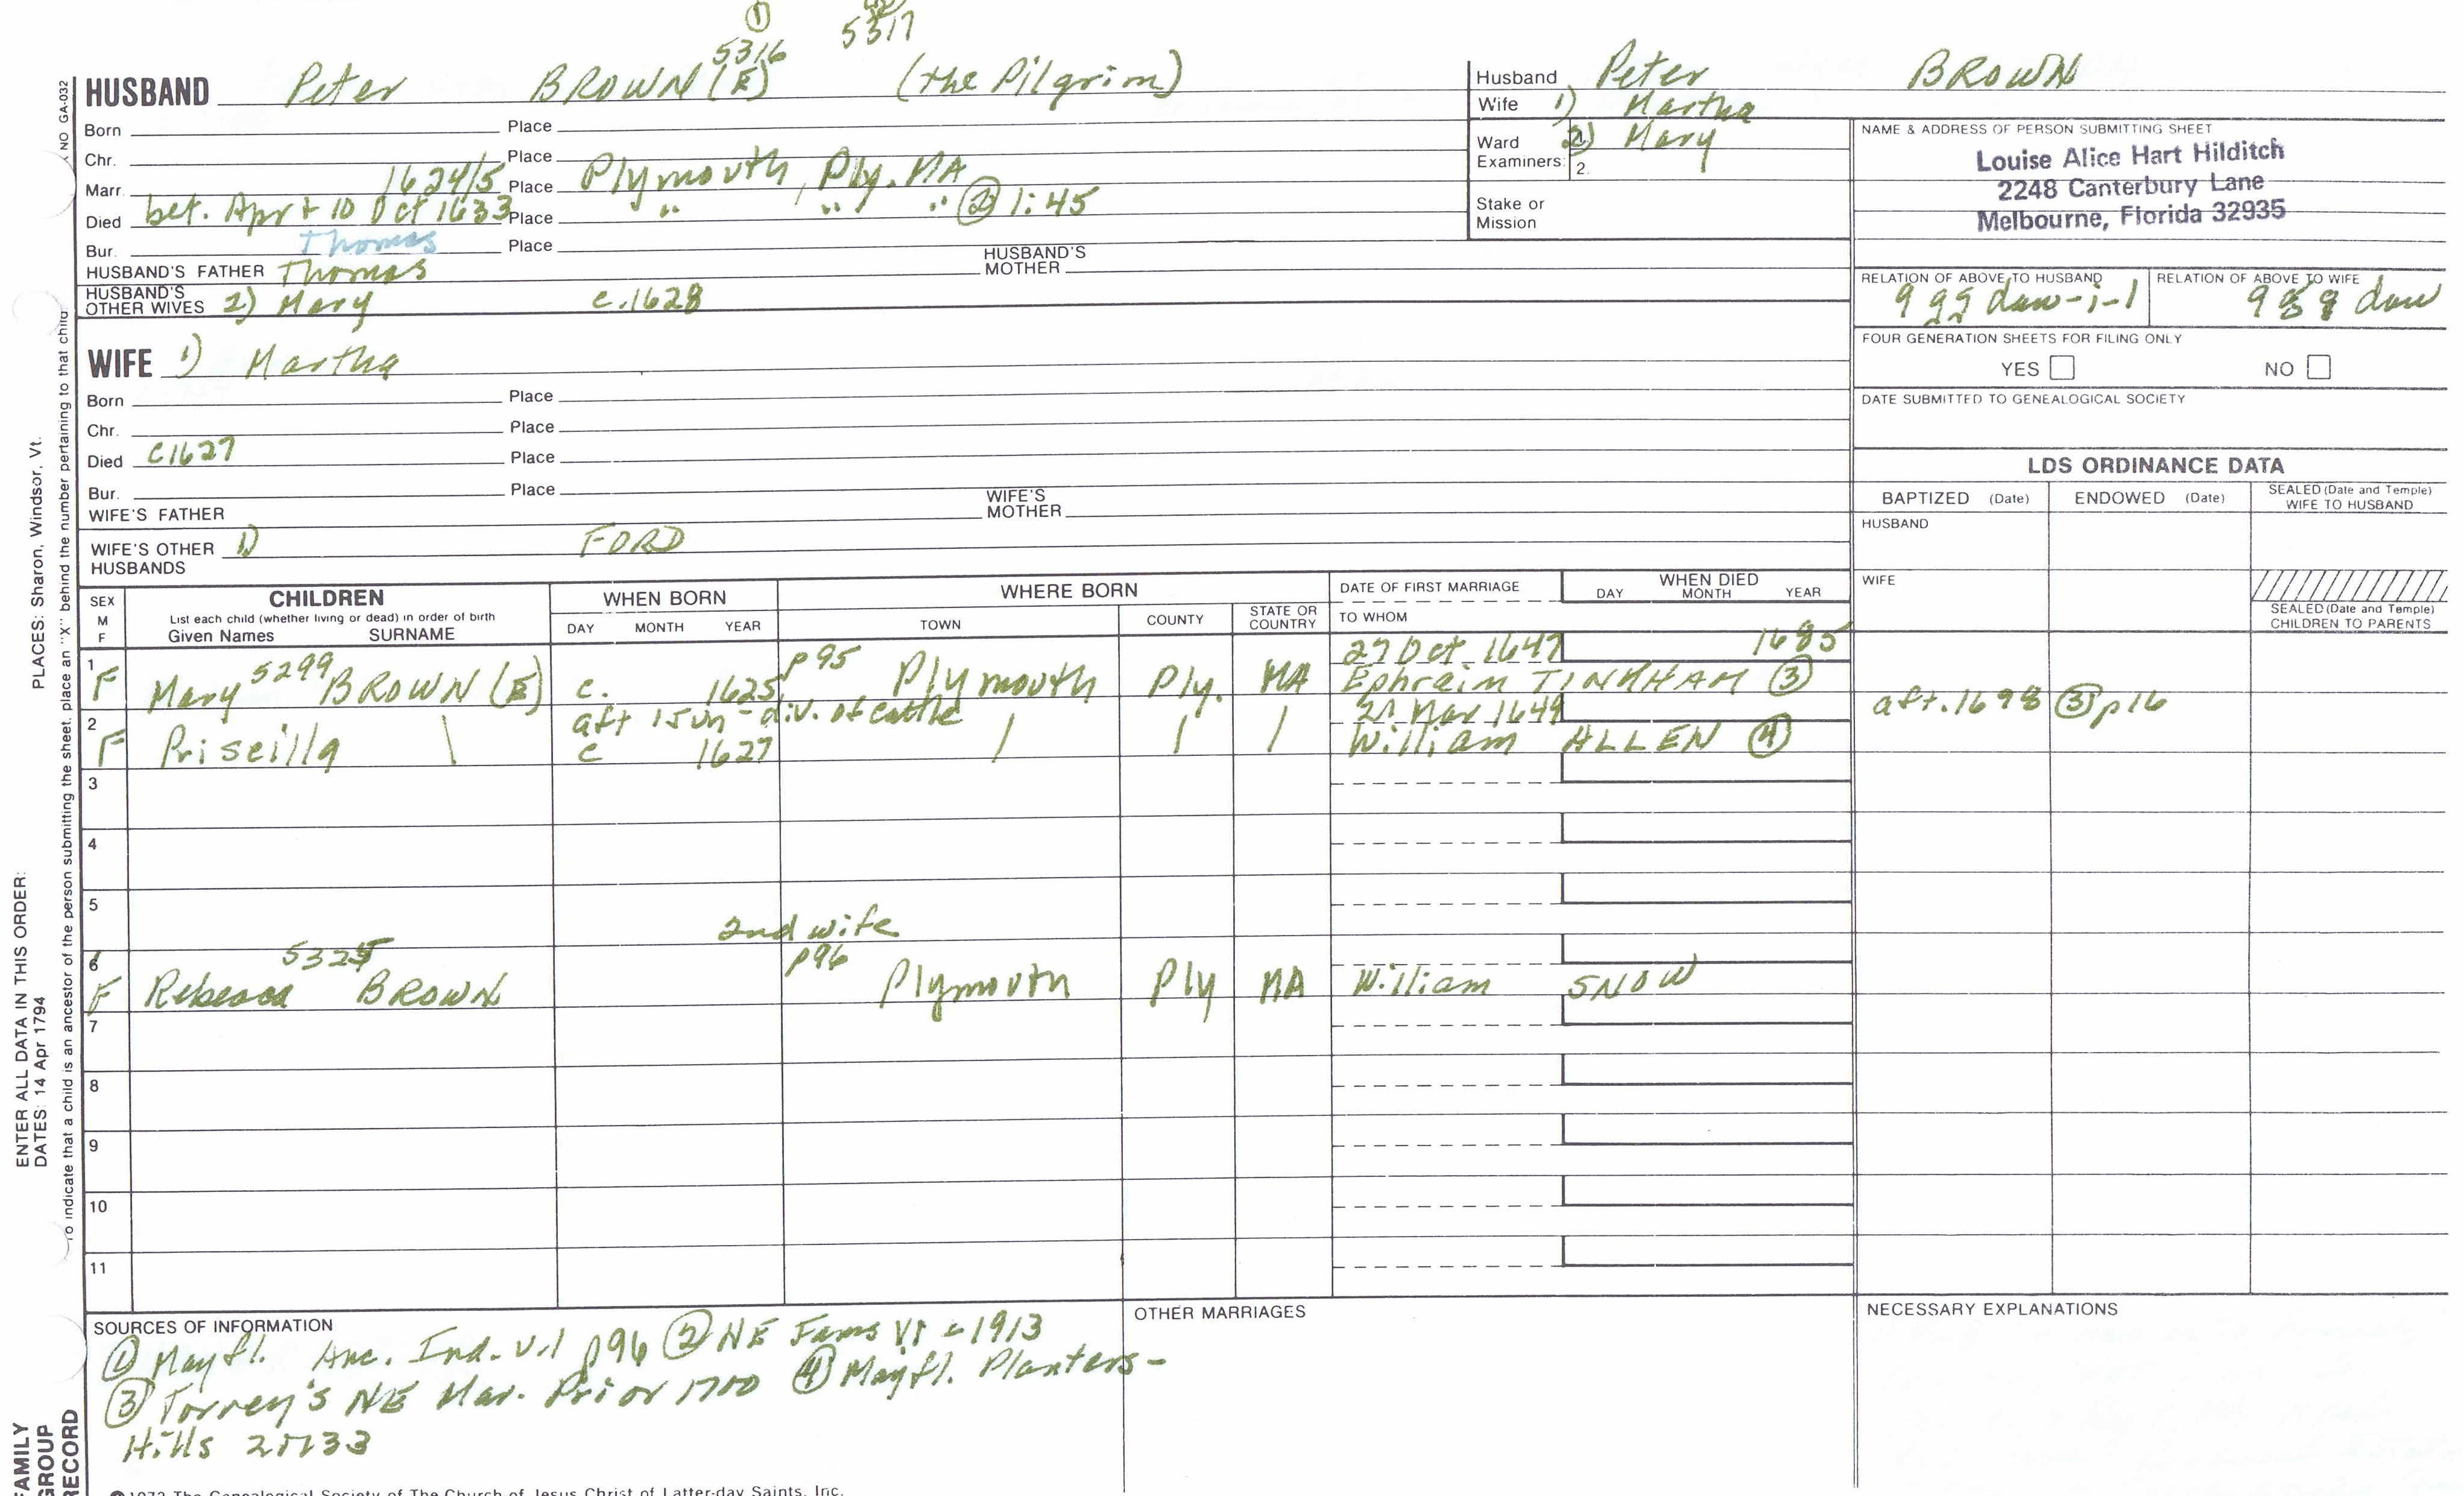 ① 5317
5316
HUSBAND Peter BROWN (E) (the Pilgrim)
Born Place
Chr. Place
Marr. 1624/5 Place Plymouth, Ply. MA
Died bet. Apr + 10 Oct 1633 Place " " " ② 1:45
Bur. Thomas Place
HUSBAND'S FATHER Thomas HUSBAND'S MOTHER
HUSBAND'S OTHER WIVES 2) Mary c.1628
WIFE 1) Martha
Born Place
Chr. Place
Died c1627 Place
Bur. Place
WIFE'S FATHER WIFE'S MOTHER
WIFE'S OTHER HUSBANDS 1) FORD
Husband Peter BROWN
Wife 1) Martha
Ward 2) Mary
Examiners: 2.
Stake or Mission
NAME & ADDRESS OF PERSON SUBMITTING SHEET
Louise Alice Hart Hilditch
2248 Canterbury Lane
Melbourne, Florida 32935
RELATION OF ABOVE TO HUSBAND RELATION OF ABOVE TO WIFE
9 gg dau-i-l 9 gg dau
FOUR GENERATION SHEETS FOR FILING ONLY
YES NO
DATE SUBMITTED TO GENEALOGICAL SOCIETY
LDS ORDINANCE DATA
BAPTIZED (Date) ENDOWED (Date) SEALED (Date and Temple) WIFE TO HUSBAND
HUSBAND
WIFE
SEALED (Date and Temple) CHILDREN TO PARENTS
SEX M F CHILDREN WHEN BORN WHERE BORN DATE OF FIRST MARRIAGE WHEN DIED
List each child (whether living or dead) in order of birth
Given Names SURNAME DAY MONTH YEAR TOWN COUNTY STATE OR COUNTRY TO WHOM DAY MONTH YEAR
1 5299 p95 27 Oct 1647 1685
F Mary BROWN (E) c. 1625 Plymouth Ply. MA Ephraim TINKHAM ③
2 aft 1 Jun - div. of cattle 21 Mar 1649 aft. 1698 ③ p16
F Priscilla | c 1627 | | | William ALLEN ④
3
4
5
2nd wife
6 5325 p96
F Rebecca BROWN Plymouth Ply MA William SNOW
7
8
9
10
11
SOURCES OF INFORMATION
① Mayfl. Anc. Ind. v.1 p96 ② NE Fams V1 c1913
③ Torrey's NE Mar. Prior 1700 ④ Mayfl. Planters-
Hills
OTHER MARRIAGES
NECESSARY EXPLANATIONS
NO GA-032
PLACES: Sharon, Windsor, Vt.
To indicate that a child is an ancestor of the person submitting the sheet, place an "X" behind the number pertaining to that child
ENTER ALL DATA IN THIS ORDER:
DATES: 14 Apr 1794
FAMILY
GROUP
RECORD
1972 The Genealogical Society of The Church of Jesus Christ of Latter-day Saints, Inc.